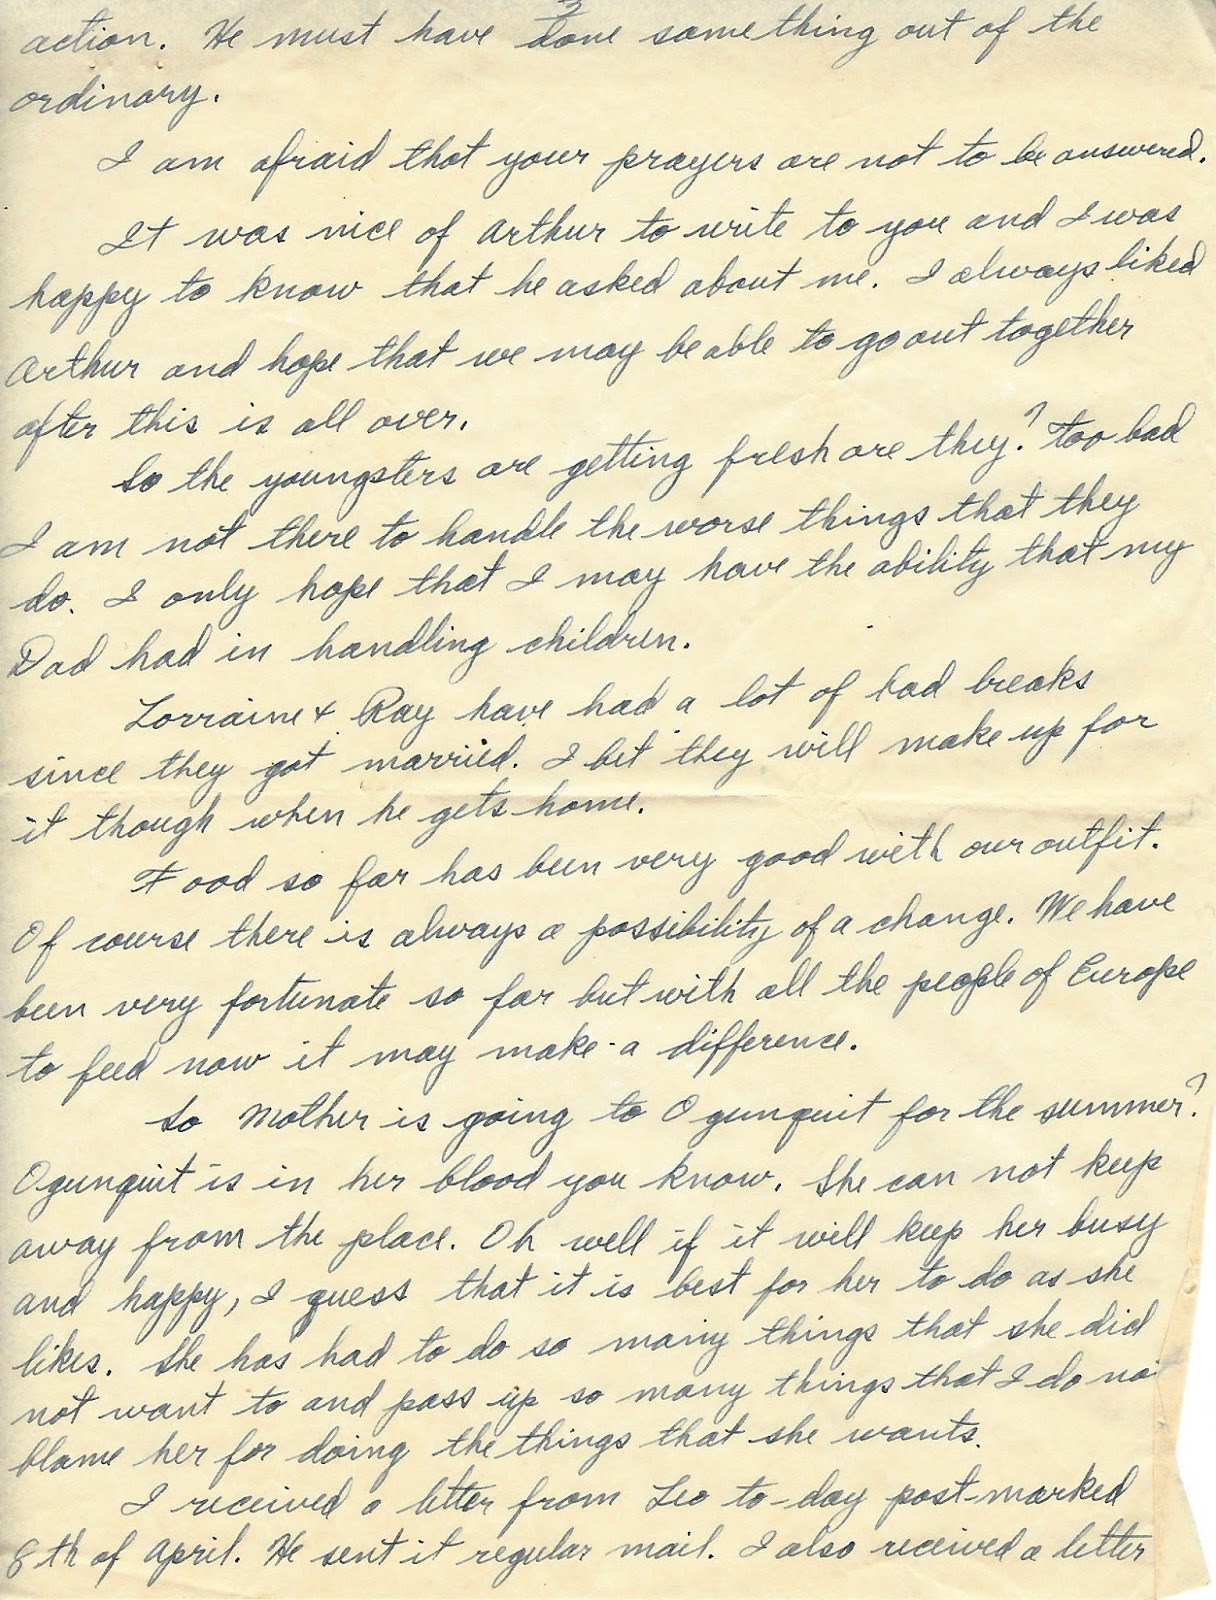 action. He must have done something out of the
ordinary.
I am afraid that your prayers are not to be answered.
It was nice of Arthur to write to you and I was
happy to know that he asked about me. I always liked
Arthur and hope that we may be able to go out together
after this is all over.
So the youngsters are getting fresh are they? Too bad
I am not there to handle the worse things that they
do. I only hope that I may have the ability that my
Dad had in handling children.
Lorraine & Ray have had a lot of bad breaks
since they got married. I bet they will make up for
it though when he gets home.
Food so far has been very good with our outfit.
Of course there is always a possibility of a change. We have
been very fortunate so far but with all the people of Europe
to feed now it may make a difference.
So Mother is going to Ogunquit for the summer?
Ogunquit is in her blood you know. She can not keep
away from the place. Oh well if it will keep her busy
and happy, I guess that it is best for her to do as she
likes. She has had to do so many things that she did
not want to and pass up so many things that I do not
blame her for doing the things that she wants.
I received a letter from Leo to-day post-marked
8th of April. He sent it regular mail. I also received a letter